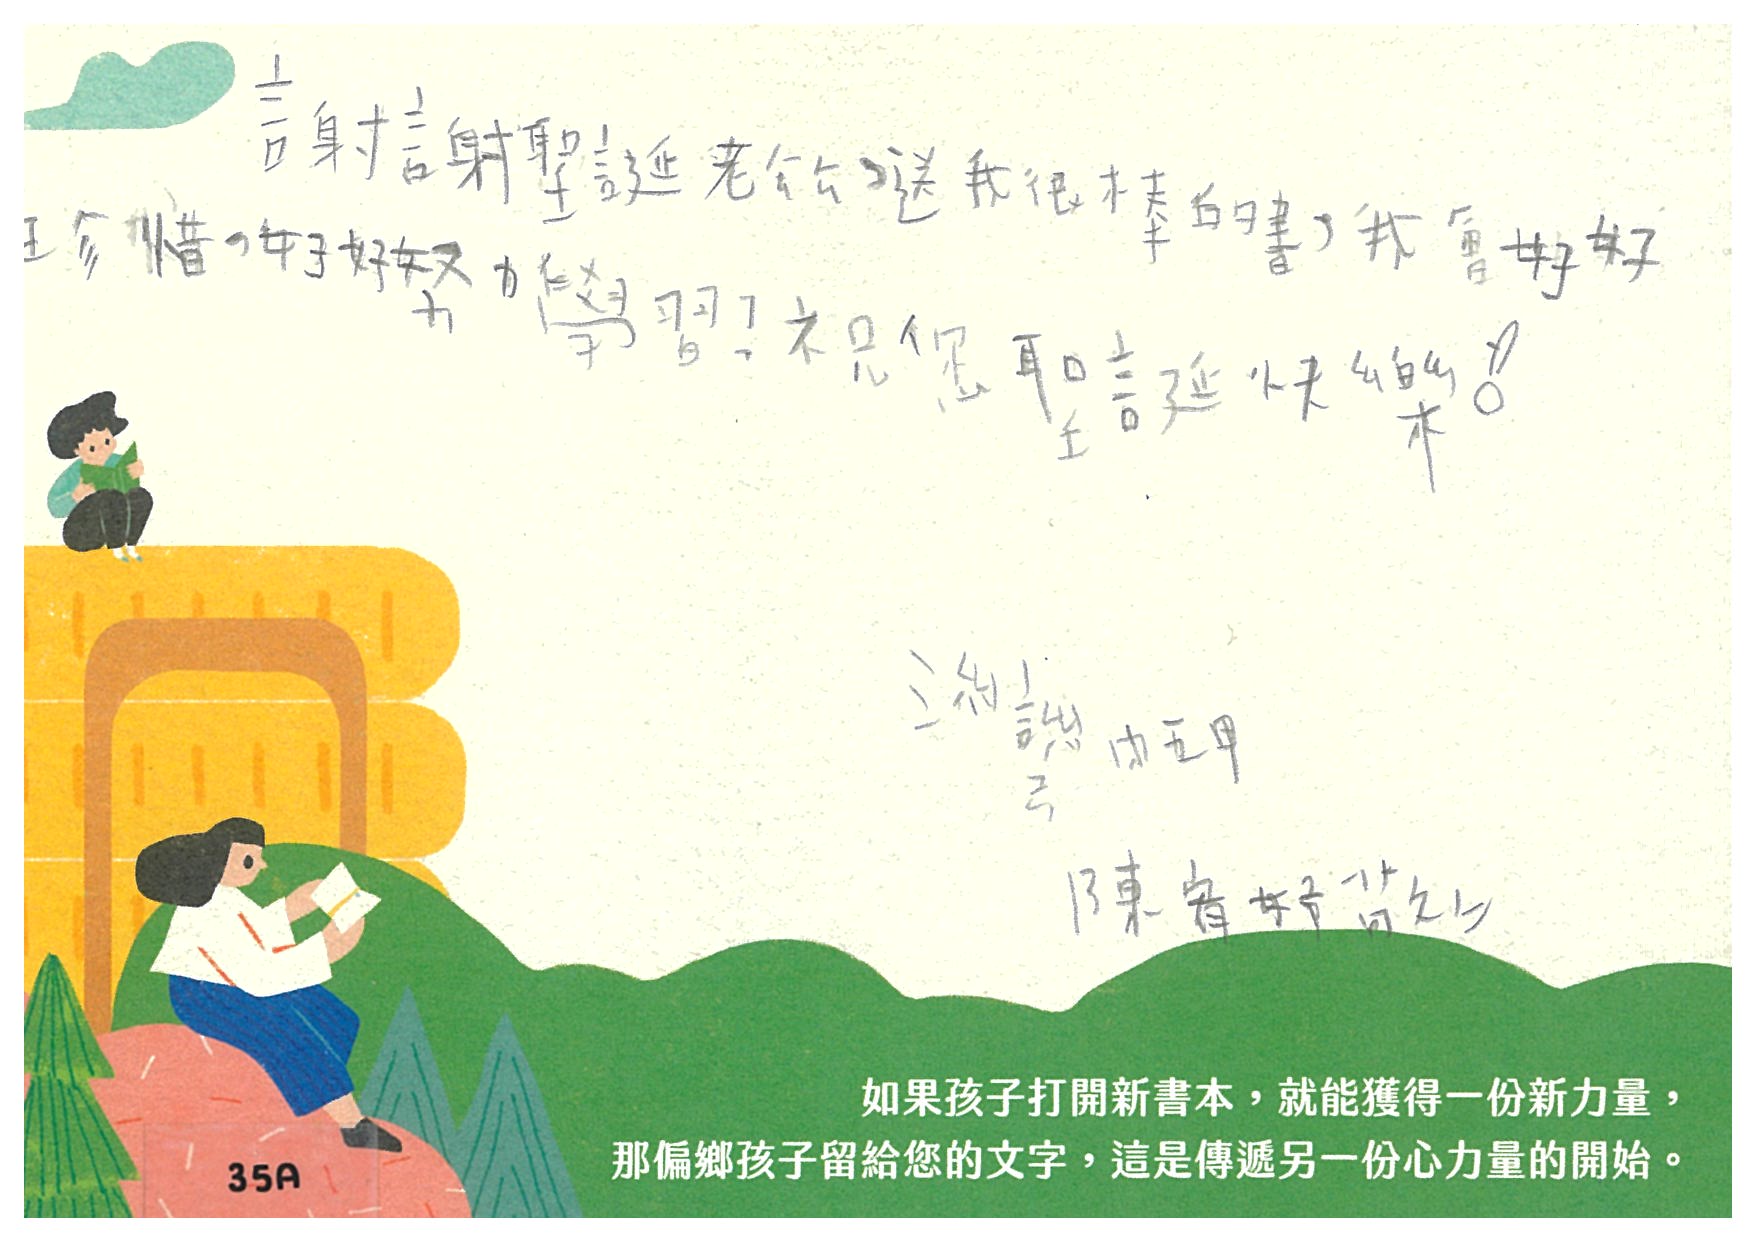 謝謝聖誕老公公送我很棒的書，我會好好
珍惜，好好努力學習！祝您聖誕快樂！
五甲
陳宥妤敬上
如果孩子打開新書本，就能獲得一份新力量，
那偏鄉孩子留給您的文字，這是傳遞另一份心力量的開始。
35A